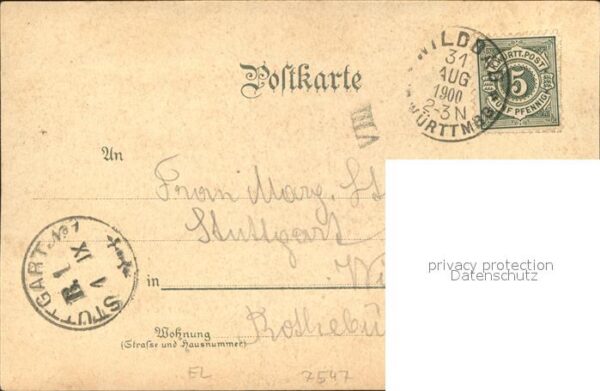 WILDBAD
31
AUG
1900
2-3 N
WÜRTTMBG
K. WÜRTT. POST
5
FÜNF PFENNIG
Postkarte
VIII
An
Frau Marg. St
Stuttgart
in
STUTTGART No 1
1 IX
Wohnung
(Strasse und Hausnummer)
EL
7547
privacy protection
Datenschutz